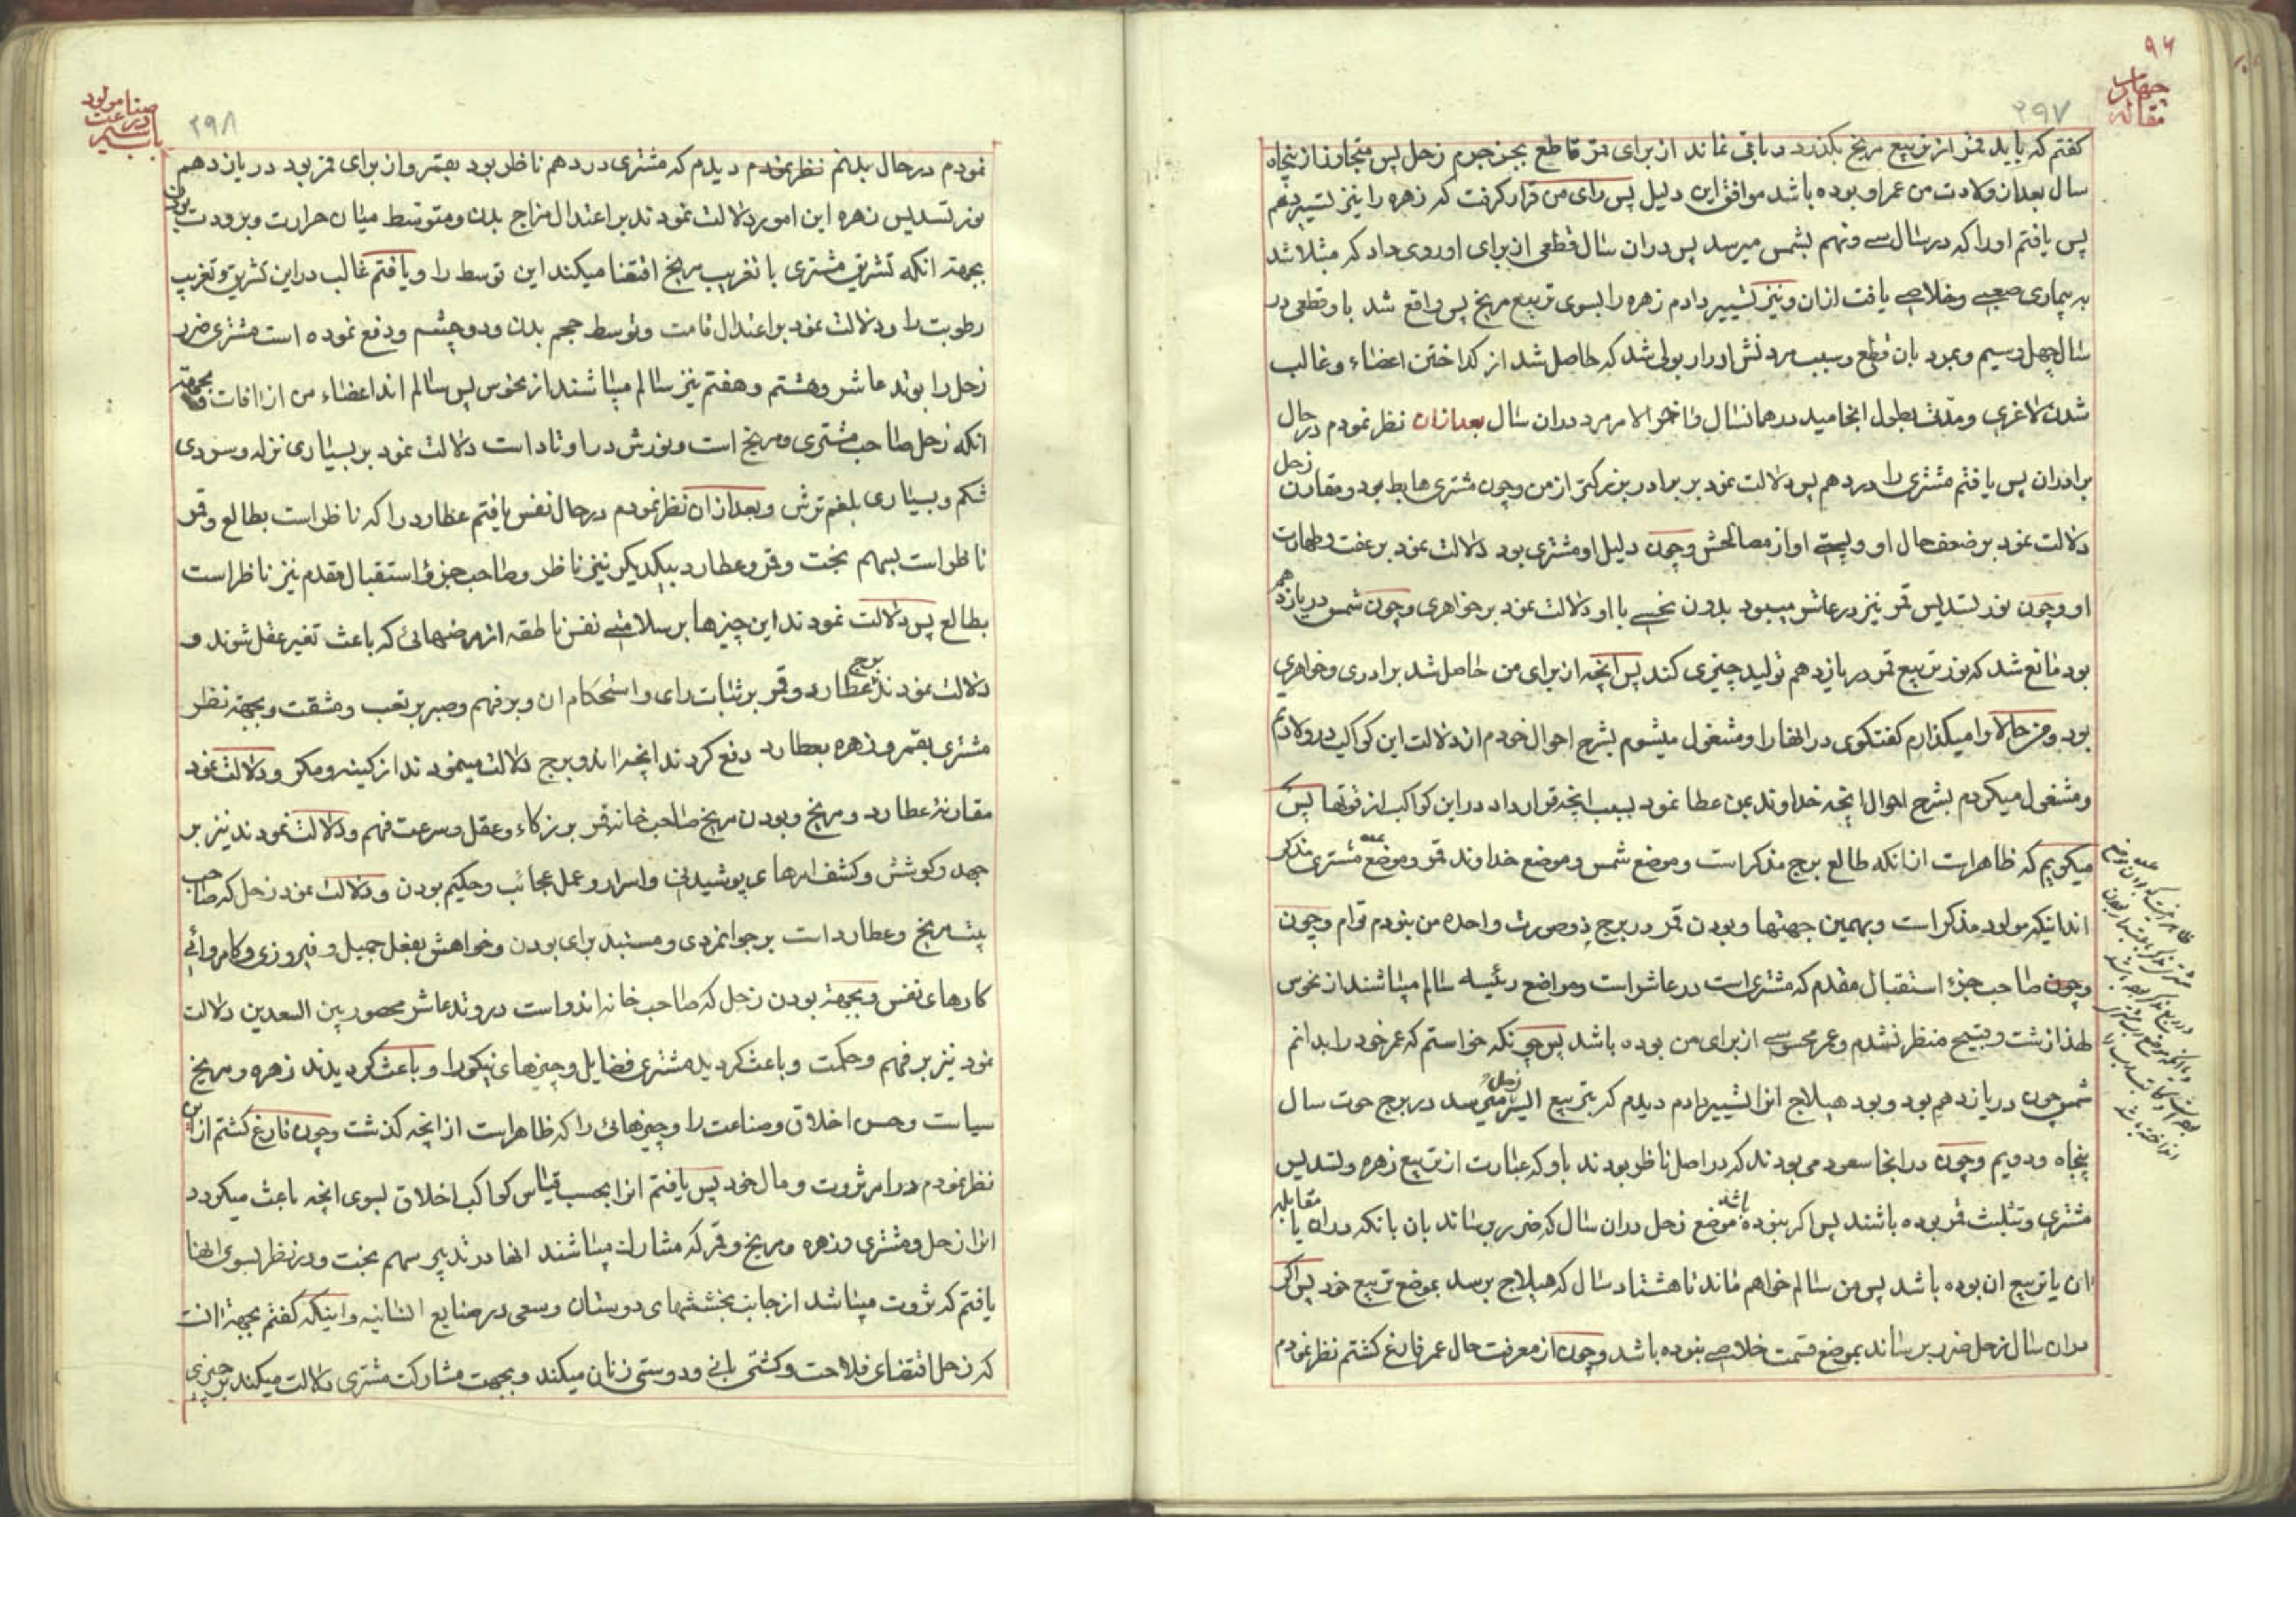 ۹۶
چهارم
مقاله
۲۹۷
کفتم که باید قمر از تربیع مریخ بکذرد و باقی نماند از برای قمر قاطع بجز جرم زحل پس متجاوز از پنجاه
سال بعد از ولادت من عمر او بوده باشد موافق این دلیل پس رای من قرار کرفت که زهره را نیز تسییر دهم
پس یافتم او را که در سال سے و نهم بشمس میرسد پس دران سال قطعی از برای او روی داد که مبتلا شد
به بیماری صعبے و خلاصے یافت ازان و نیز تسییر دادم زهره را بسوی تربیع مریخ پس واقع شد با و قطعی در
سال چهل و سیم و بمرد بان قطع و سبب مردنش ادرار بولی شد که حاصل شد از کداختن اعضاء و غالب
شدن لاغری و مدتش بطول انجامید در همانسال و اخر الامر مرد دران سال بعد ازان نظر نمودم در حال
برادران پس یافتم مشتری را در دهم پس دلالت نمود بر برادر بزرکتر از من و چون مشتری هابط بود و مقارن زحل
دلالت نمود بر ضعف حال او و پستے او از مصالحش و چون دلیل او مشتری بود دلالت نمود بر عفت و طهارت
او و چون نور تسدیس قمر نیز در عاشر میبود بدون نحسے با او دلالت نمود بر خواهری و چون شمس در یازدهم
بود مانع شد که نور تربیع قمر در یازدهم تولید چیزی کند پس انچه از برای من حاصل شد برادری و خواهری
بود و من حالا وا میکذارم کفتکوی در انها را و مشغول میشوم بشرح احوال خودم از دلالت این کواکب در ولادتم
و مشغول میکردم بشرح احوال انچه خداوند بمن عطا نمود بسبب انچه قرار داد در این کواکب از قوتها پس
میکویم که ظاهر است از انکه طالع برج مذکر است و موضع شمس و موضع خداوند قمر و موضع مشتری مذکر
اند اینکه مولود مذکر است و بهمین جهتها و بودن قمر در برج ذو صورت واحده من بنودم توام و چون
و چون صاحب جزء استقبال مقدم که مشتری است در عاشر است و مواضع رئیسه سالم میباشند از نحوس
لهذا زشت و قبیح منظر نشدم و عمر محسوسے از برای من بوده باشد پس چونکه خواستم که عمر خود را بدانم
شمس چون در یازدهم بود و بود هیلاج انرا تسییر دادم دیدم که بتربیع ایسر زحل میرسد در برج حوت سال
پنجاه و دویم و چون در انجا سعود می بودند که در اصل ناظر بودند باو که عبارت از تربیع زهره و تسدیس
مشتری و تثلیث قمر بوده باشند پس اکر بنوده باشد موضع زحل دران سال که ضرر برساند بان بانکه دران یا مقابله
ان یا تربیع ان بوده باشد پس من سالم خواهم ماند تا هشتاد سال که هیلاج برسد بموضع تربیع خود پس اکر
دران سال زحل ضرر برساند بموضع قسمت خلاصے بنوده باشد و چون از معرفت حال عمر فارغ کشتم نظر نمودم
صناعت
مولود
در
باب سیم
۲۹۸
نمودم در حال بدنم نظر نمودم دیدم که مشتری در دهم ناظر بود بقمر و از برای قمر بود در یازدهم
نور تسدیس زهره این امور دلالت نمودند بر اعتدال مزاج بدن و متوسط میان حرارت و برودت بودن
بجهته انکه تشریق مشتری با تغریب مریخ اقتضا میکند این توسط را و یافتم غالب در این تشریق و تغریب
رطوبت را و دلالت نمود بر اعتدال قامت و توسط حجم بدن و دو چشم و دفع نموده است مشتری ضرر
زحل را بوتد عاشر و هشتم و هفتم نیز سالم میباشند از نحوس پس سالم اند اعضاء من از افات و بجهته
انکه زحل صاحب مشتری و مریخ است و نورش در اوتاد است دلالت نمود بر بسیاری نزله و سردی
شکم و بسیاری بلغم ترش و بعد ازان نظر نمودم در حال نفس یافتم عطارد را که ناظر است بطالع و قمر
ناظر است بسهم بخت و قمر و عطارد بیکدیکر نیز ناظر و صاحب جزؤ استقبال مقدم نیز ناظر است
بطالع پس دلالت نمودند این چیزها بر سلامتے نفس ناطقه از مرضهائی که باعث تغیر عقل شوند و
دلالت نمودند برج عطارد و قمر بر ثبات رای و استحکام ان و بر فهم و صبر بر تعب و مشقت و بجهته نظر
مشتری بقمر و زهره بعطارد دفع کردند انچه را ندو برج دلالت مینمودند از کینه و مکر و دلالت نمود
مقارنهٔ عطارد و مریخ و بودن مریخ صاحب خانه قمر بر زکاء و عقل و سرعت فهم و دلالت نمودند نیز بر
جهد و کوشش و کشف امرهای پوشیدنی و اسرار و عمل عجائب و حکیم بودن و دلالت نمود زحل که صاحب
بیت مریخ و عطارد است بر جوانمردی و مستبد برای بودن و خواهش بفعل جمیل و فیروزی و کامروائے
کارهای نفس و بجهته بودن زحل که صاحب خانه اندو است در وتد عاشر محصور بین السعدین دلالت
نمود نیز بر فهم و حکمت و باعث کردید مشتری فضایل و چیزهای نیکو را و باعث کردیدند زهره و مریخ
سیاست و حسن اخلاق و صناعت را و چیزهائی را که ظاهر است از انچه کذشت و چون فارغ کشتم از این
نظر نمودم در امر ثروت و مال خود پس یافتم انرا بحسب قیاس کواکب اخلاق بسوی انچه باعث میکردد
انرا زحل و مشتری و زهره و مریخ و قمر که مشارک میباشند انها در تدبیر سهم بخت و در نظر بسوی انها
یافتم که ثروت میباشد از جانب بخششهای دوستان و سعی در صنایع انسانیه و اینکه کفتم بجهته انست
که زحل اقتضای فلاحت و کشتی بانے و دوستی زنان میکند و بجهت مشارکت مشتری دلالت میکند بر چیزی